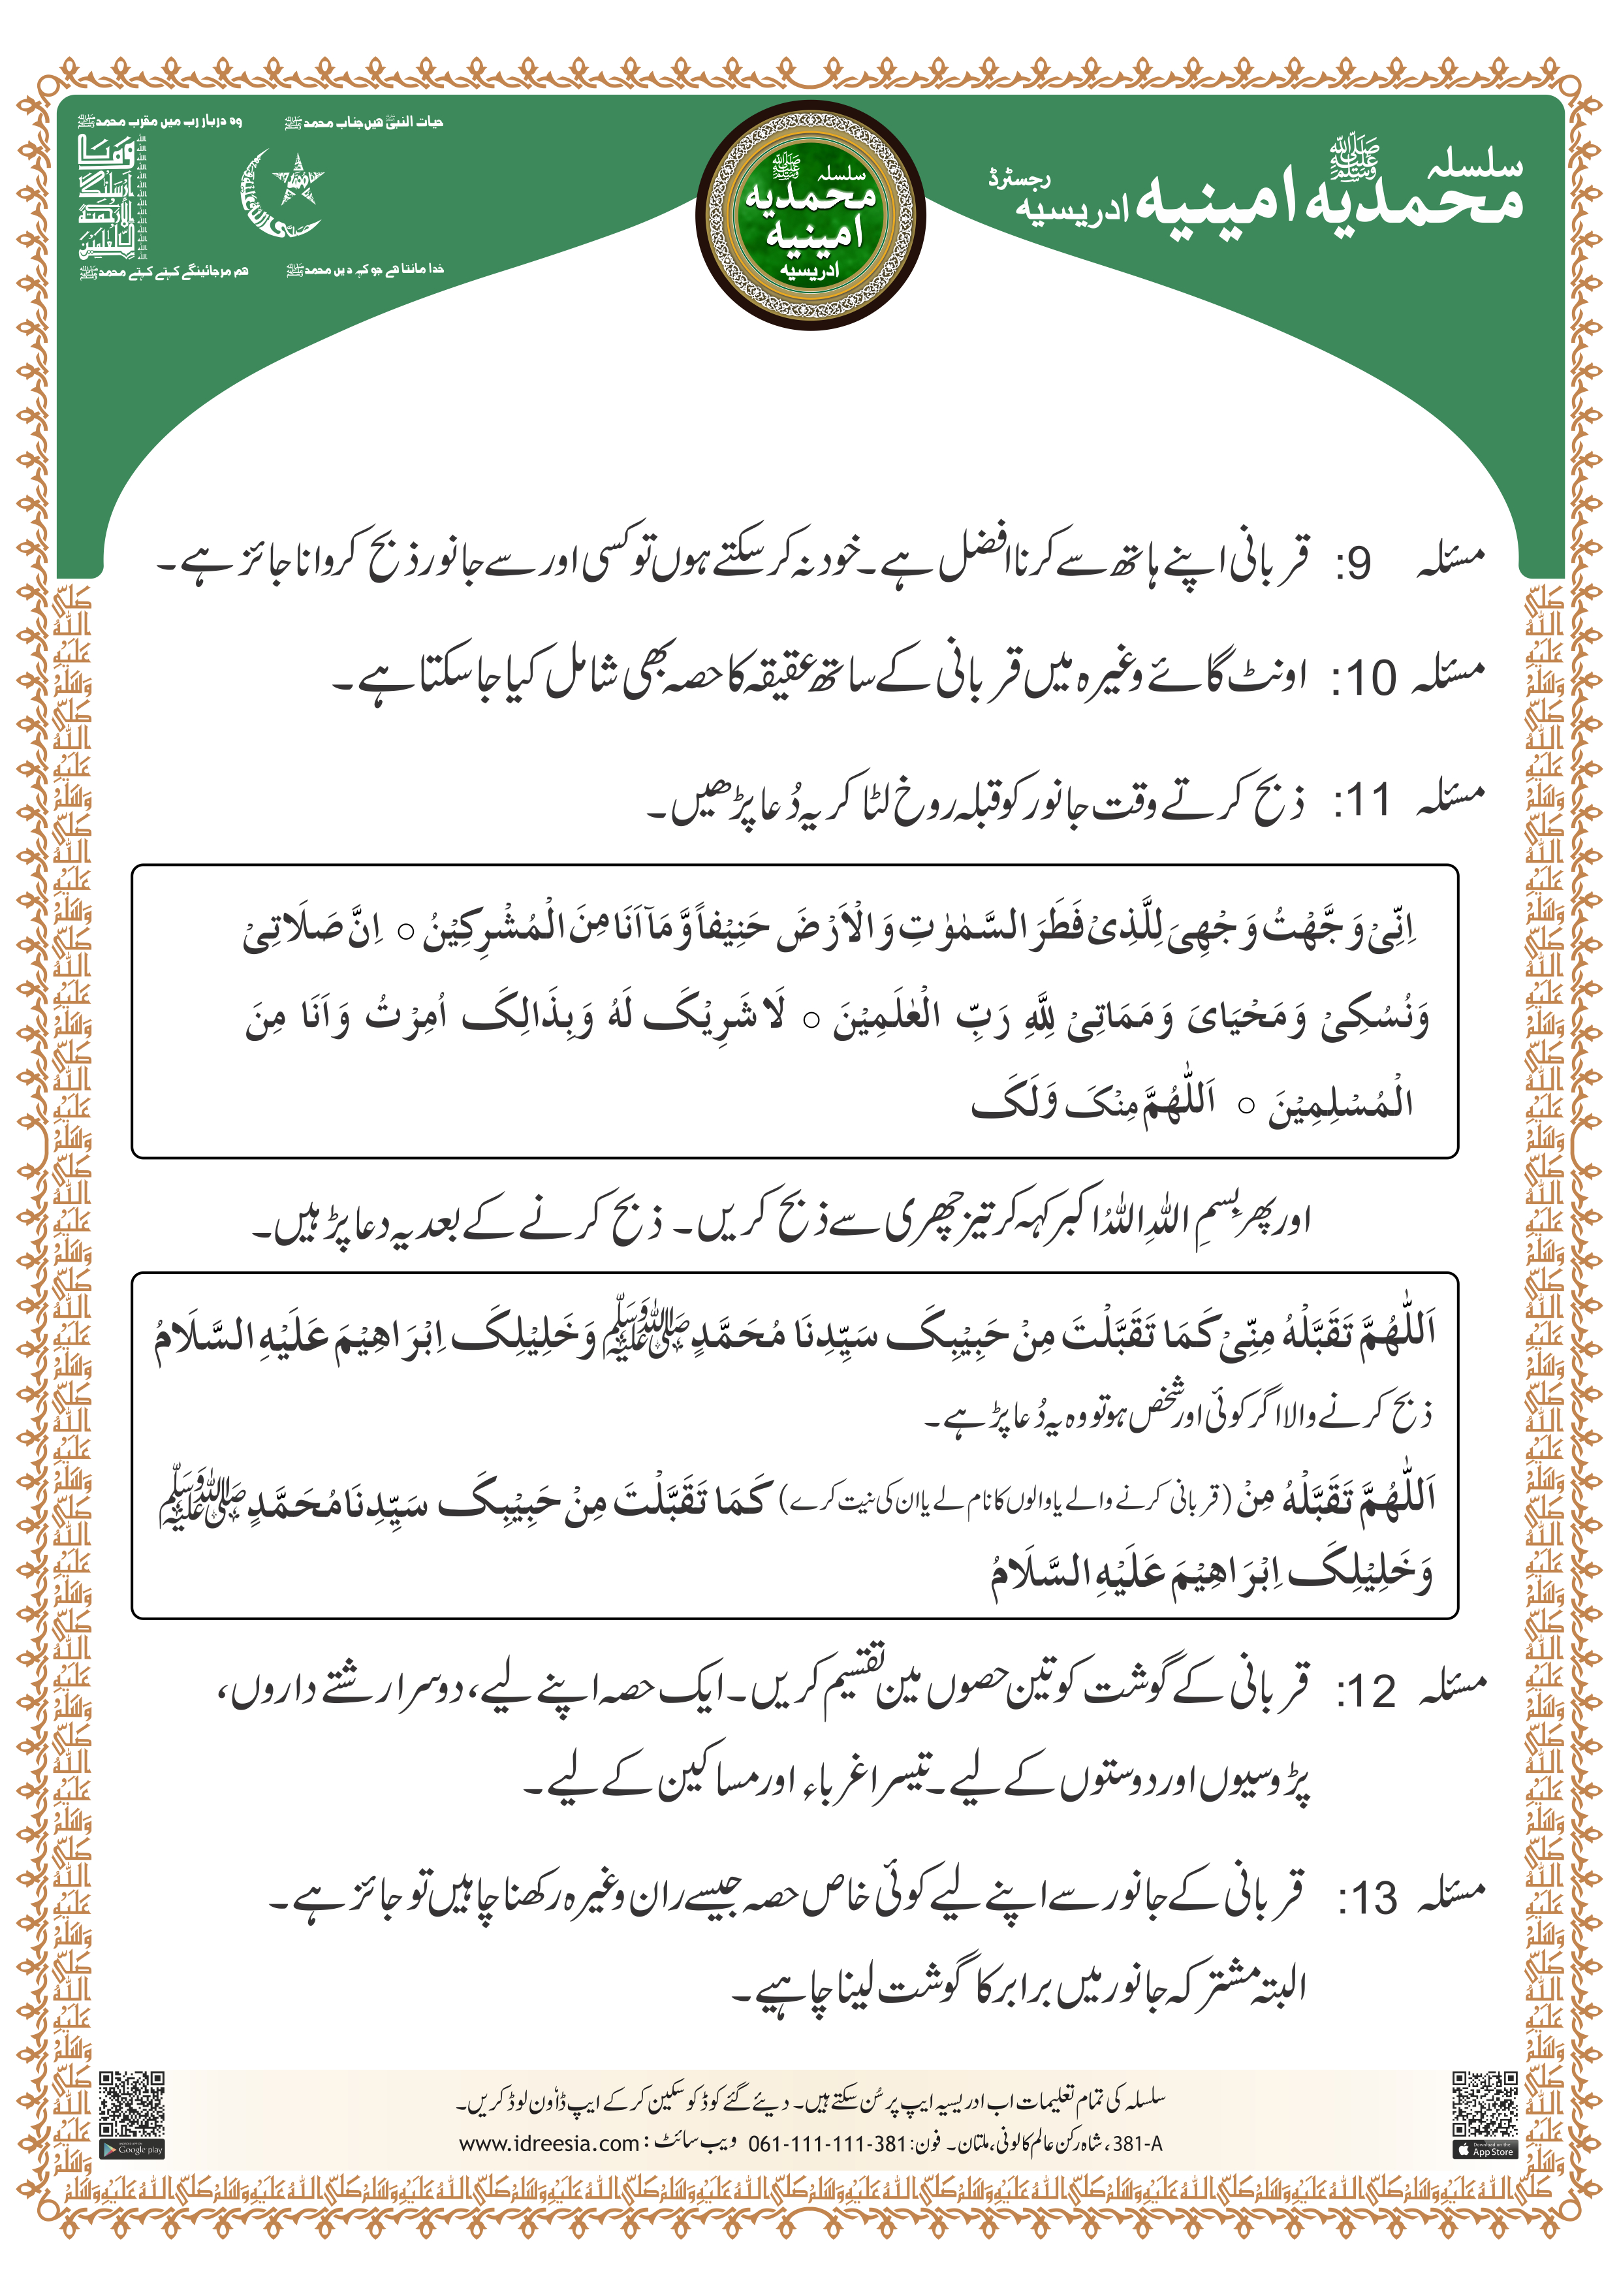 سلسلہ
محمدیہ ﷺ امینیہ ادریسیہ رجسٹرڈ
سلسلہ ﷺ
محمدیہ
امینیہ
ادریسیہ
حیات النبیؐ ھیں جناب محمد ﷺ
وہ دربار رب میں مقرب محمد ﷺ
وَمَا
اَرْسَلْنٰکَ
اِلَّا رَحْمَۃً
لِّلْعٰلَمِیْنَ
خدا مانتا ھے جو کہ دیں محمد ﷺ
ھم مرجائینگے کہتے کہتے محمد ﷺ
مسئلہ 9: قربانی اپنے ہاتھ سے کرنا افضل ہے۔ خود نہ کر سکتے ہوں تو کسی اور سے جانور ذبح کروانا جائز ہے۔
مسئلہ 10: اونٹ گائے وغیرہ میں قربانی کے ساتھ عقیقہ کا حصہ بھی شامل کیا جا سکتا ہے۔
مسئلہ 11: ذبح کرتے وقت جانور کو قبلہ روخ لٹا کر یہ دُعا پڑھیں۔
اِنِّیْ وَجَّھْتُ وَجْھِیَ لِلَّذِیْ فَطَرَ السَّمٰوٰتِ وَالْاَرْضَ حَنِیْفاً وَّمَآ اَنَا مِنَ الْمُشْرِکِیْنُ ○ اِنَّ صَلَاتِیْ
وَنُسُکِیْ وَمَحْیَایَ وَمَمَاتِیْ لِلّٰہِ رَبِّ الْعٰلَمِیْنَ ○ لَا شَرِیْکَ لَہُ وَبِذَالِکَ اُمِرْتُ وَاَنَا مِنَ
الْمُسْلِمِیْنَ ○ اَللّٰھُمَّ مِنْکَ وَلَکَ
اور پھر بِسمِ اللہِ اللہُ اکبر کہہ کر تیز چھری سے ذبح کریں۔ ذبح کرنے کے بعد یہ دعا پڑہیں۔
اَللّٰھُمَّ تَقَبَّلْہُ مِنِّیْ کَمَا تَقَبَّلْتَ مِنْ حَبِیْبِکَ سَیِّدِنَا مُحَمَّدٍ ﷺ وَخَلِیْلِکَ اِبْرَاھِیْمَ عَلَیْہِ السَّلَامُ
ذبح کرنے والا اگر کوئی اور شخص ہو تو وہ یہ دُعا پڑہے۔
اَللّٰھُمَّ تَقَبَّلْہُ مِنْ (قربانی کرنے والے یا والوں کا نام لے یا ان کی نیت کرے) کَمَا تَقَبَّلْتَ مِنْ حَبِیْبِکَ سَیِّدِنَا مُحَمَّدٍ ﷺ
وَخَلِیْلِکَ اِبْرَاھِیْمَ عَلَیْہِ السَّلَامُ
مسئلہ 12: قربانی کے گوشت کو تین حصوں مین تقسیم کریں۔ ایک حصہ اپنے لیے، دوسرا رشتے داروں،
پڑوسیوں اور دوستوں کے لیے۔ تیسرا غرباء اور مساکین کے لیے۔
مسئلہ 13: قربانی کے جانور سے اپنے لیے کوئی خاص حصہ جیسے ران وغیرہ رکھنا چاہیں تو جائز ہے۔
البتہ مشترکہ جانور میں برابر کا گوشت لینا چاہیے۔
سلسلہ کی تمام تعلیمات اب ادریسیہ ایپ پر سُن سکتے ہیں۔ دیئے گئے کوڈ کو سکین کر کے ایپ ڈاؤن لوڈ کریں۔
381-A، شاہ رکن عالم کالونی، ملتان۔ فون: 061-111-111-381 ویب سائٹ: www.idreesia.com
Google play
Download on the
App Store
صَلَّی اللہُ عَلَیْہِ وَسَلَّمْ